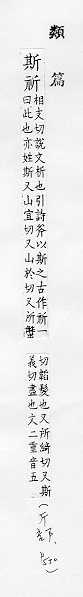 類
篇
斯𣂚
相支切說文析也引詩斧以斯之古作𣂚一
曰此也亦姓斯又山宜切又山於切又所蟹
切韜髮也又所綺切又斯
義切盡也文二重音五